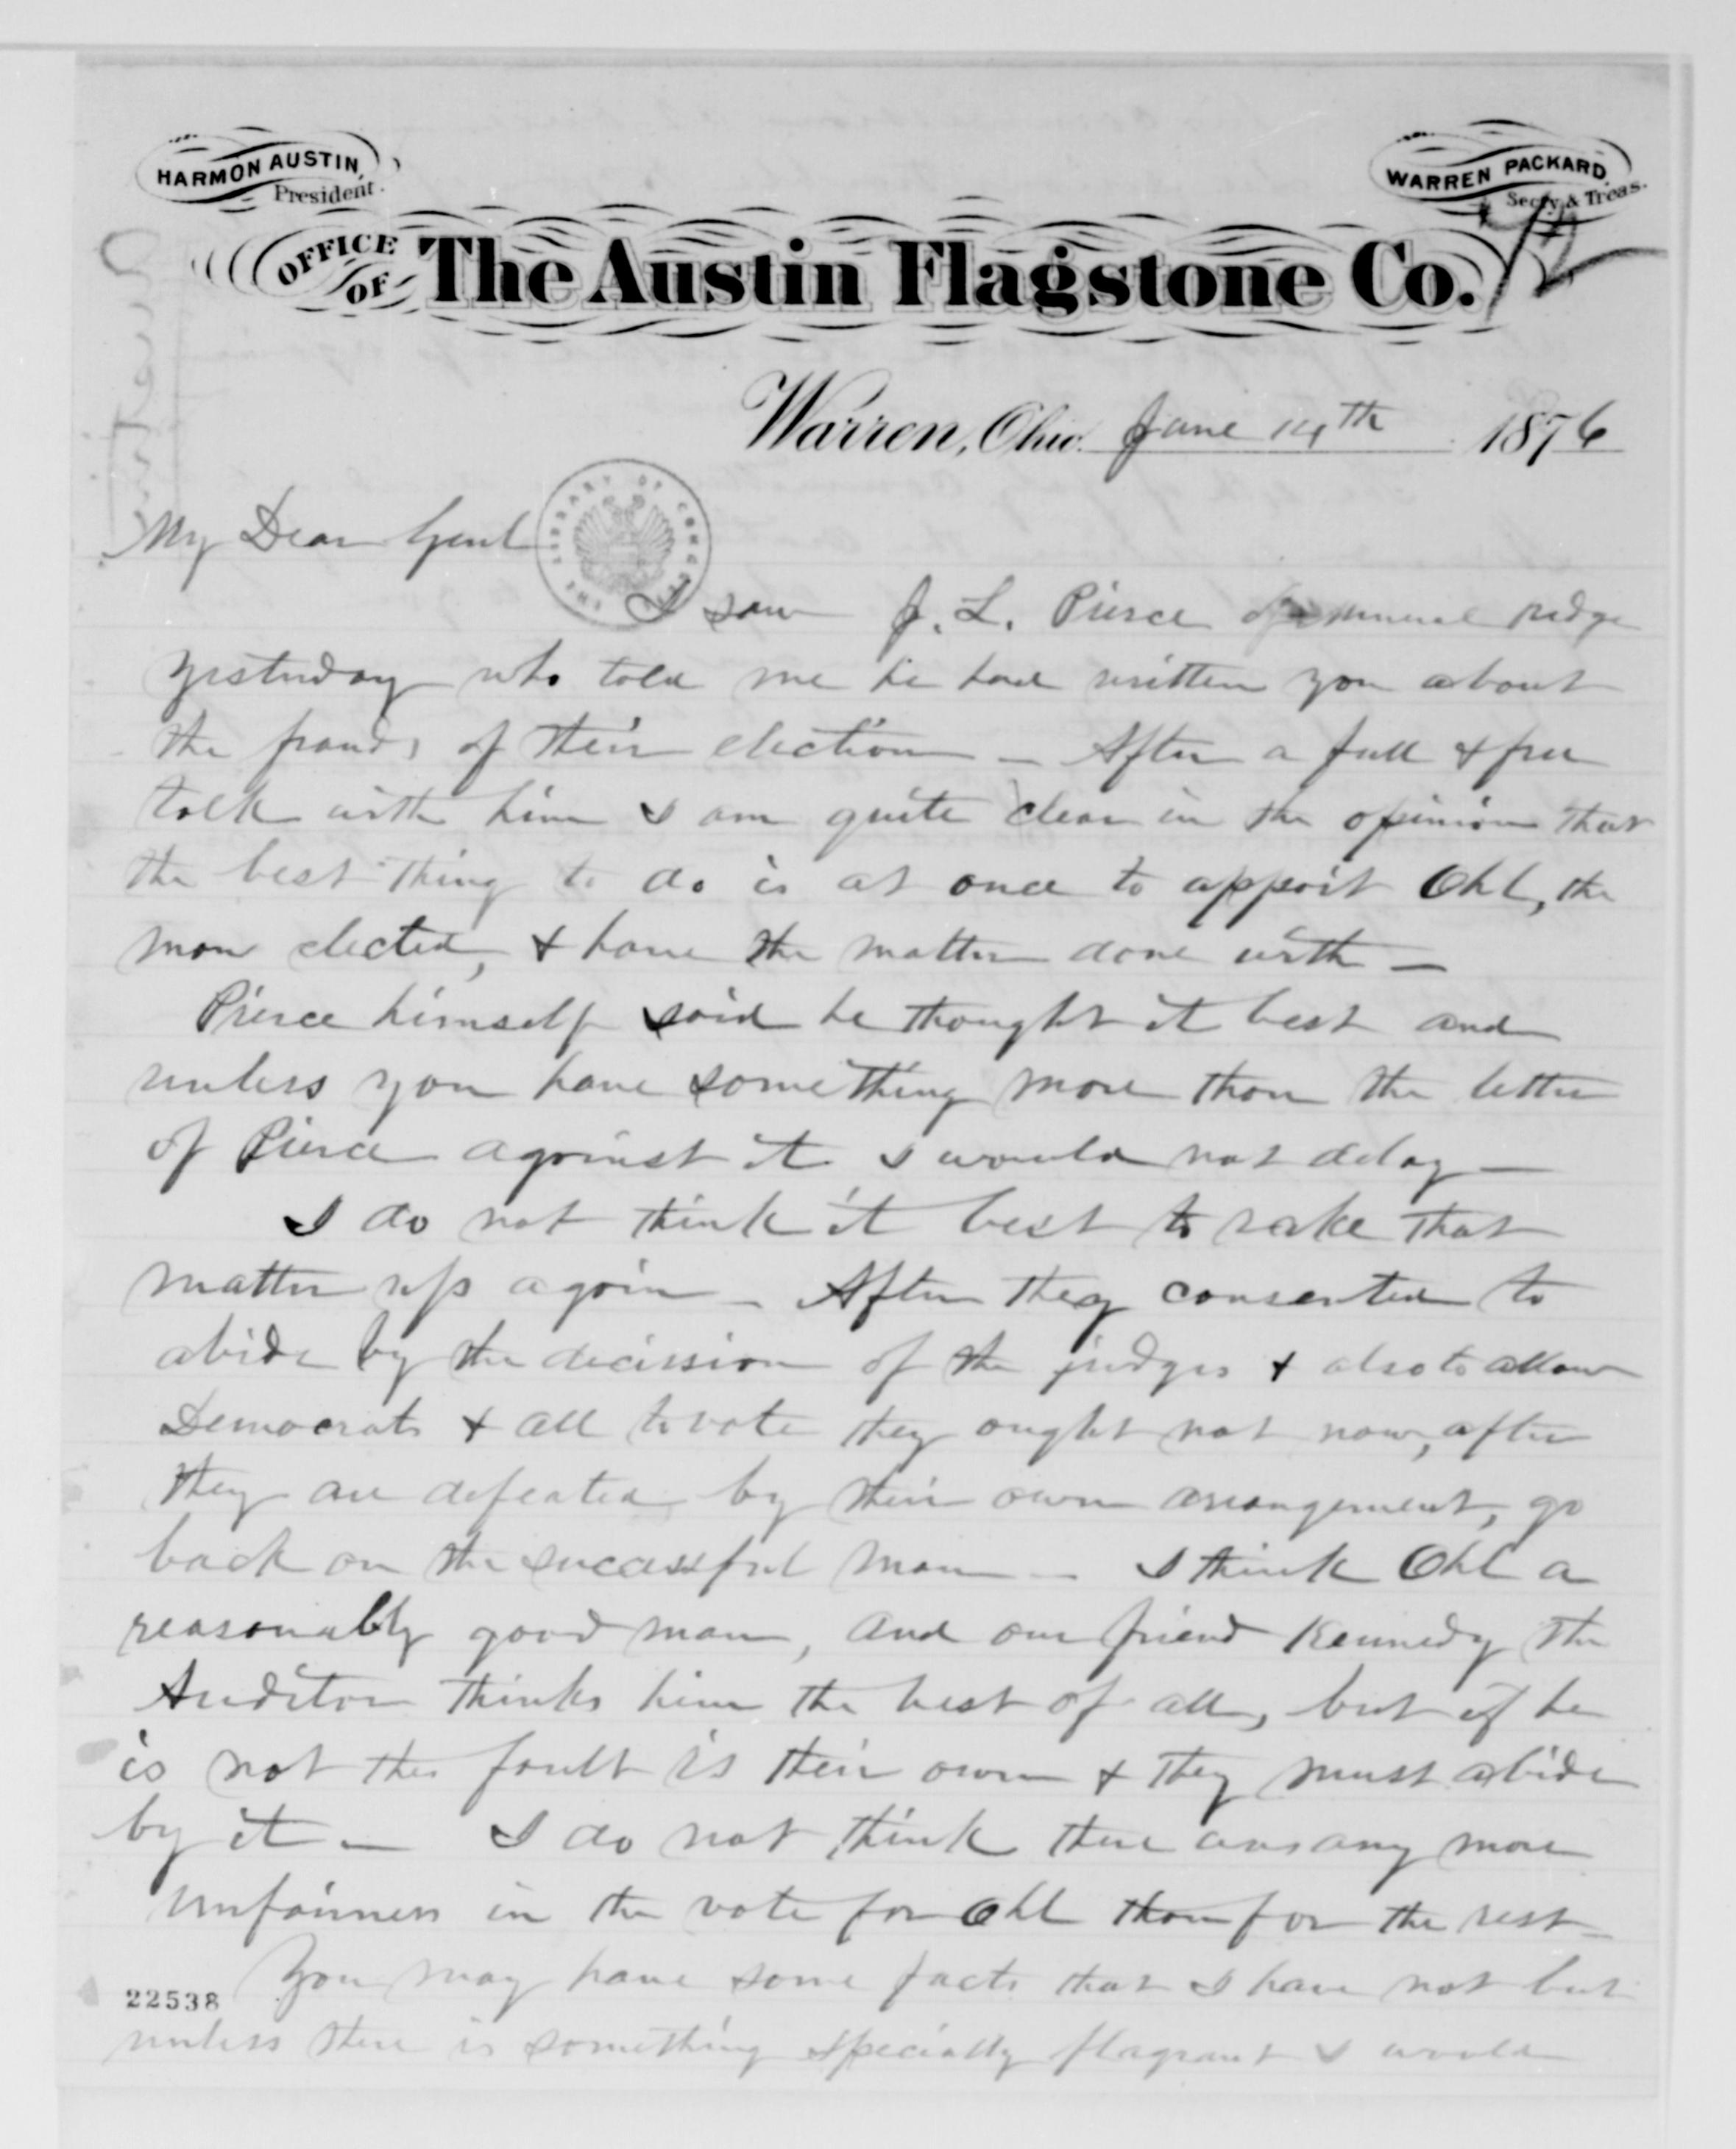 HARMON AUSTIN,
President.
WARREN PACKARD
Secty & Treas.
OFFICE
OF
The Austin Flagstone Co.
12
Warren, Ohio. June 14th 1876
My Dear Genl
THE LIBRARY OF CONGRESS
I saw J. L. Pierce of mineral ridge
yesterday who told me he had written you about
the frauds of their election — After a full & free
talk with him I am quite clear in the opinion that
the best thing to do is at once to appoit Ohl, the
man elected, & have the matter done with —
Pierce himself said he thought it best and
unless you have something more than the letter
of Pierce against it I would not delay —
I do not think it best to rake that
matter up again — After they consented to
abide by the decission of the judges & also to allow
Democrats & all to vote they ought not now, after
they are defeated by their own arrangement, go
back on the successful man — I think Ohl a
reasonably good man, and our friend Kennedy the
Auditor thinks him the best of all, but if he
is not the fault is their own & they must abide
by it — I do not think there was any more
unfairness in the vote for Ohl than for the rest —
You may have some facts that I have not but
22538
unless there is something specially flagrant I would